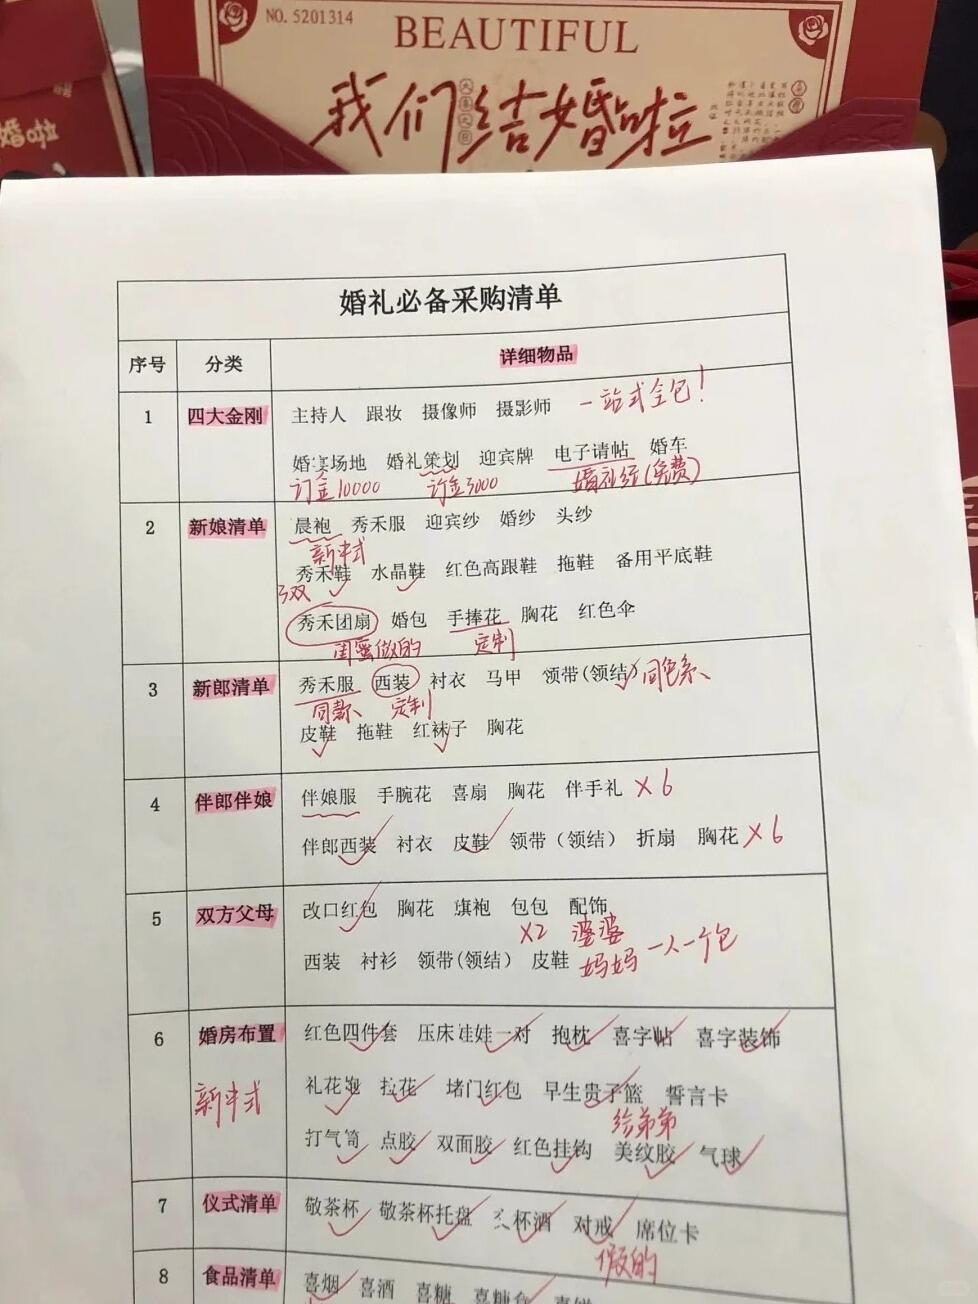 NO. 5201314
BEAUTIFUL
我们结婚啦
婚啦
婚礼必备采购清单
序号 分类 详细物品
1 四大金刚 主持人 跟妆 摄像师 摄影师 一站式全包！
婚宴场地 婚礼策划 迎宾牌 电子请帖 婚车
订金10000 订金3000 婚礼纪(免费)
2 新娘清单 晨袍 秀禾服 迎宾纱 婚纱 头纱
新中式
秀禾鞋 水晶鞋 红色高跟鞋 拖鞋 备用平底鞋
3双
秀禾团扇 婚包 手捧花 胸花 红色伞
闺蜜做的 定制
3 新郎清单 秀禾服 西装 衬衣 马甲 领带(领结) 同色系
同款 定制
皮鞋 拖鞋 红袜子 胸花
4 伴郎伴娘 伴娘服 手腕花 喜扇 胸花 伴手礼 ×6
伴郎西装 衬衣 皮鞋 领带（领结） 折扇 胸花 ×6
5 双方父母 改口红包 胸花 旗袍 包包 配饰
×2 婆婆
西装 衬衫 领带(领结) 皮鞋 妈妈 一人一个包
6 婚房布置 红色四件套 压床娃娃一对 抱枕 喜字帖 喜字装饰
新中式 礼花炮 拉花 堵门红包 早生贵子篮 誓言卡
给弟弟
打气筒 点胶 双面胶 红色挂钩 美纹胶 气球
7 仪式清单 敬茶杯 敬茶杯托盘 交杯酒 对戒 席位卡
假的
8 食品清单 喜烟 喜酒 喜糖 喜糖盒